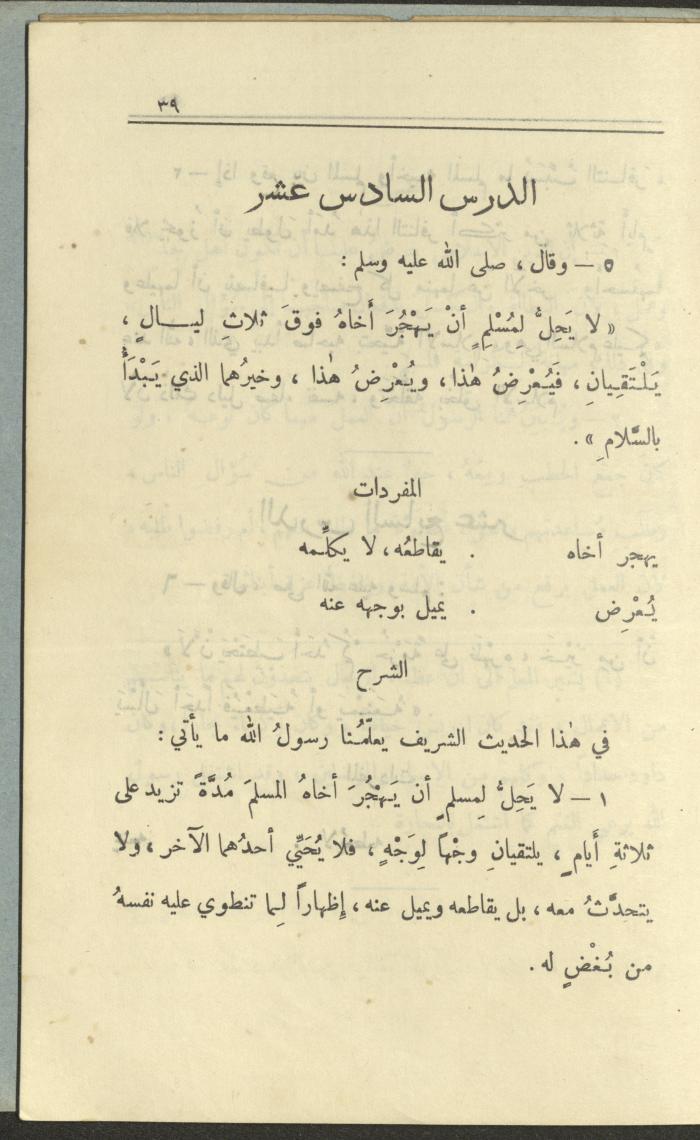 ٣٩
الدرس السادس عشر
٥ — وقال ، صلى الله عليه وسلم :
« لا يَحِلُّ لِمُسْلِمٍ أنْ يَهْجُرَ أَخاهُ فوقَ ثلاثِ ليـــالٍ ،
يَلْتَقِيانِ ، فَيُعْرِضُ هٰذا ، ويُعْرِضُ هٰذا ، وخيرُهما الذي يَبْدَأُ
بالسَّلامِ » .
المفردات
يهجر أخاه . يقاطعُه ، لا يكلِّمه
يُعْرِض . يميل بوجهه عنه
الشرح
في هٰذا الحديث الشريف يعلّمُنا رسولُ الله ما يأتي :
١ — لا يَحِلُّ لِمسلمٍ أن يَهْجُرَ أخاهُ المسلمَ مُدَّةً تزيد على
ثلاثةِ أَيامٍ ، يلتقيانِ وجْهاً لِوَجْهٍ ، فلا يُحَيِّي أحدُهما الآخر ، ولا
يتحدَّثُ معه ، بل يقاطعه ويميل عنه ، إِظهاراً لِما تنطوي عليه نفسهُ
من بُغْضٍ له .